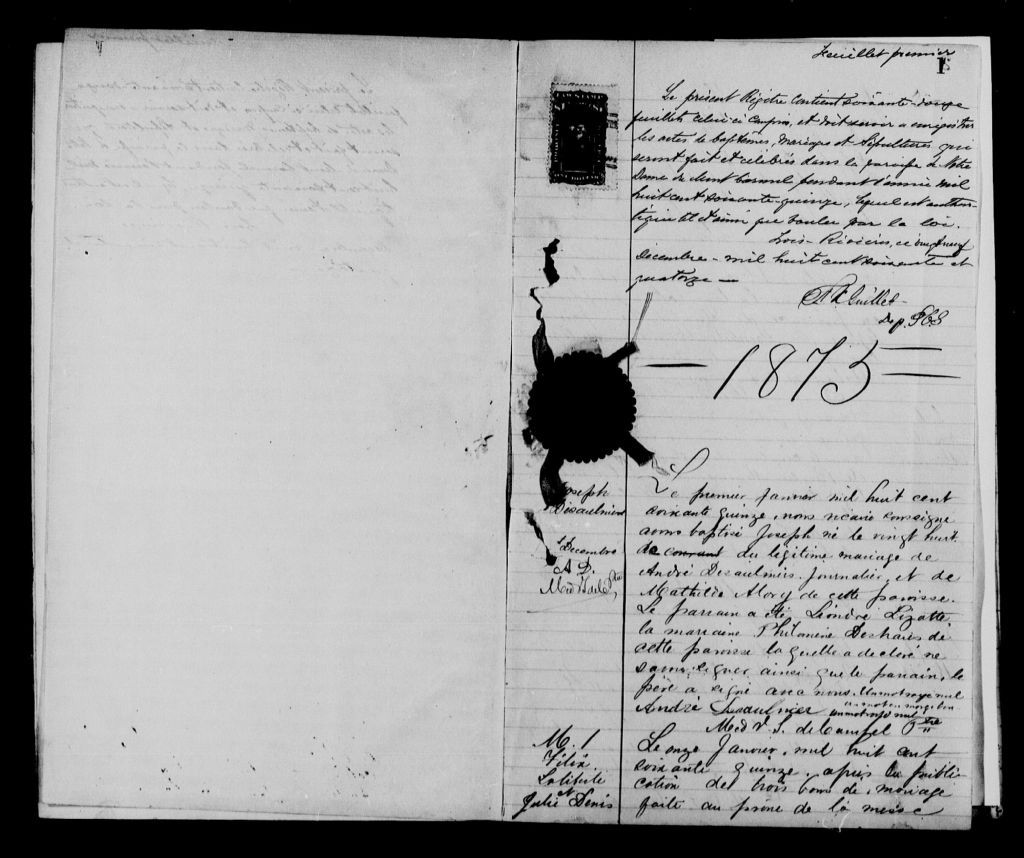 Feuillet premier
1
Le présent Régître contient soixante-douze
feuillets celui ci compris, et doit servir a enrégistrer
les actes de baptêmes, mariages et Sépultures qui
seront fait et célébrés dans la paroisse de Notre
Dame du Mont Carmel pendant l'année mil
huit cent soixante-quinze, lequel est authen-
tiqué tel et ainsi que voulu par la loi.
Trois-Rivières, ce vingt neuf
Décembre - mil huit cent soixante et
quatorze —
Guillet
Dep. P.C.S
— 1875 —
Joseph
Désaulniers
Décembre
A. D.
Le premier Janvier mil huit cent
soixante quinze, nous vicaire soussigné
avons baptisé Joseph né le vingt huit
de courant du légitime mariage de
André Desaulniers journalier, et de
Mathilde de cette paroisse.
Le parrain a été Léandre
la marraine Philomène Deshaies de
cette paroisse laquelle a declaré ne
savoir signer ainsi que le parrain, le
père a signé avec nous. Un mot rayé nul
un mot en marge bon
André Desaulnier un mot rayé nul
Ptre
M. 1
Félix
Lotitute
et
Julie Denis
Le onze Janvier, mil huit cent
soixante quinze, après la publi-
cation de trois bans de mariage
faite au prône de la messe